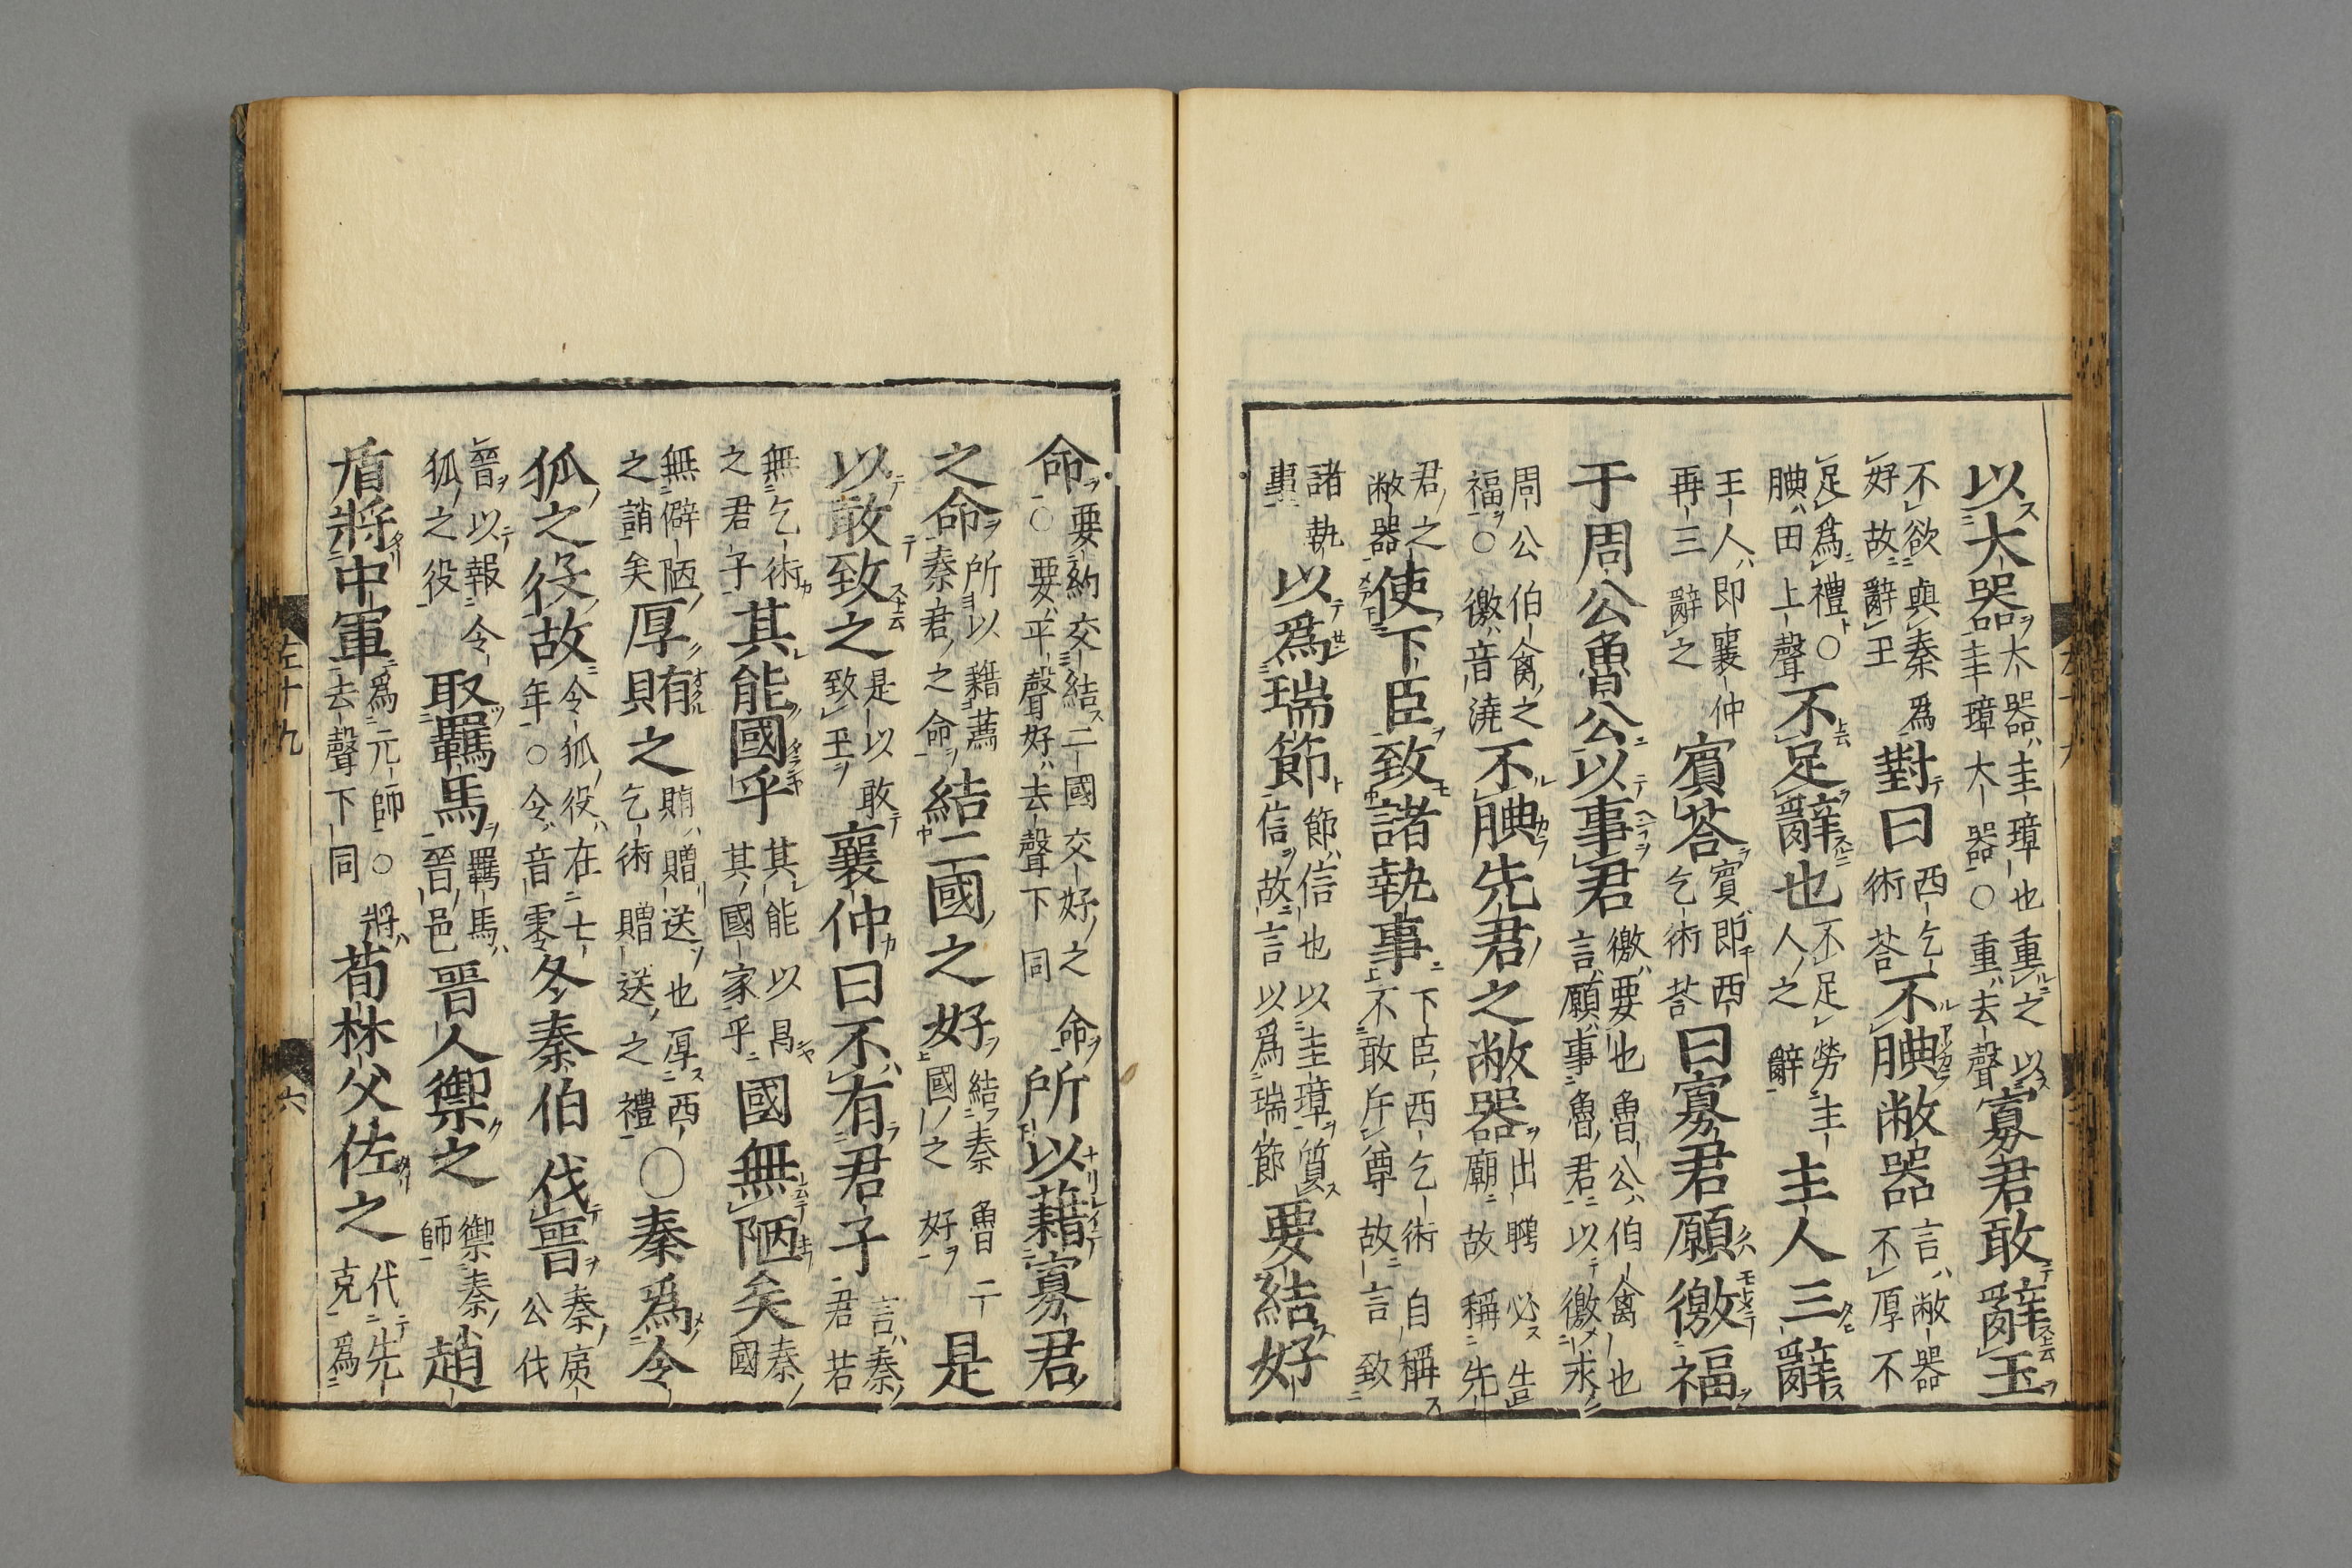 以大器大器圭璋也重之以圭璋大器○重去聲寡君敢辭玉
不欲與秦爲好故辭玉對曰西乞術荅不腆敝器言敝器不厚不
足爲禮○腆田上聲不足辭也不足勞主人之辭主人三辭
主人即襄仲再三辭之賓荅賓即西乞術荅曰寡君願徼福
于周公魯公以事君徼要也魯公伯禽也言願事魯君以徼求
周公伯禽之福○徼音澆不腆先君之敝器出聘必告廟故稱先
君之敝器使下臣致諸執事下臣西乞術自稱不敢斥尊故言致
諸執事以爲瑞節節信也以圭璋質信故言以爲瑞節要結好
命要約交結二國交好之命○要平聲好去聲下同所以藉寡君
之命所以藉薦秦君之命結二國之好結秦魯二國之好是
以敢致之是以敢致玉襄仲曰不有君子言秦君若
無乞術之君子其能國乎其能以昌其國家乎國無陋矣秦國
無僻陋之誚矣厚賄之賄贈送也厚西乞術贈送之禮○秦爲令
狐之役故令狐役在七年○令音零冬秦伯伐晉秦康公伐
晉以報令狐之役取羈馬羈馬晉邑晉人禦之禦秦師趙
盾將中軍爲元師○將去聲下同荀林父佐之代先克爲
左十九
六